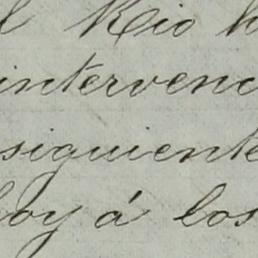 l Rio h
intervenc
siguiente
hoy á los